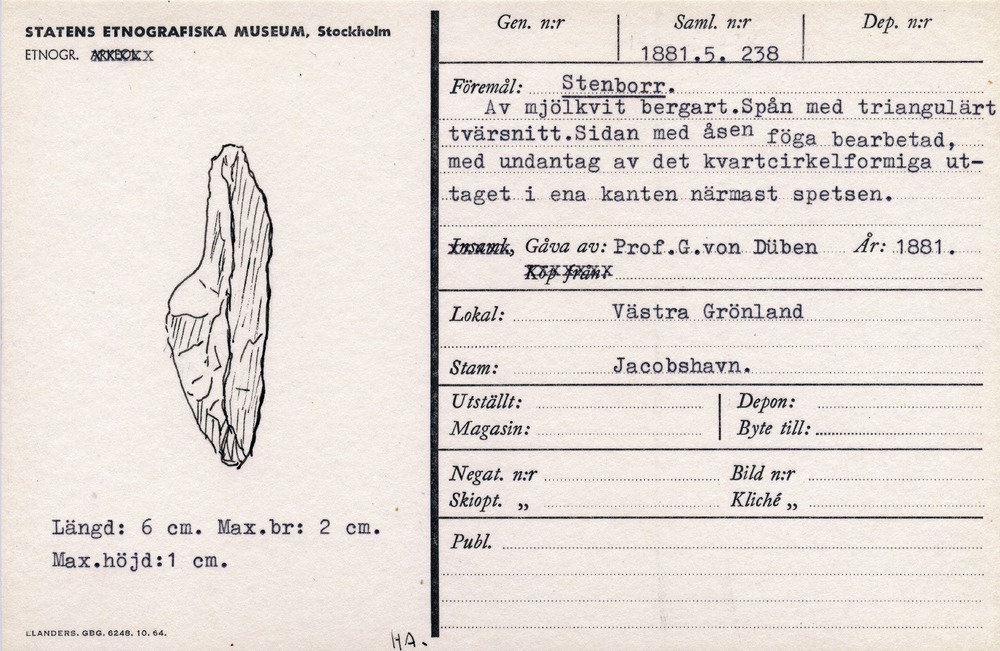 STATENS ETNOGRAFISKA MUSEUM, Stockholm
ETNOGR. ARKEOL.
Längd: 6 cm. Max.br: 2 cm.
Max.höjd:1 cm.
ELANDERS. GBG. 6248. 10. 64.
HA.
Gen. n:r Saml. n:r Dep. n:r
1881.5. 238
Föremål: Stenborr.
Av mjölkvit bergart.Spån med triangulärt
tvärsnitt.Sidan med åsen föga bearbetad,
med undantag av det kvartcirkelformiga ut-
taget i ena kanten närmast spetsen.
Insaml, Gåva av: Prof.G.von Düben År: 1881.
Köp från:
Lokal: Västra Grönland
Stam: Jacobshavn.
Utställt: Depon:
Magasin: Byte till:
Negat. n:r Bild n:r
Skiopt. „ Kliché „
Publ.